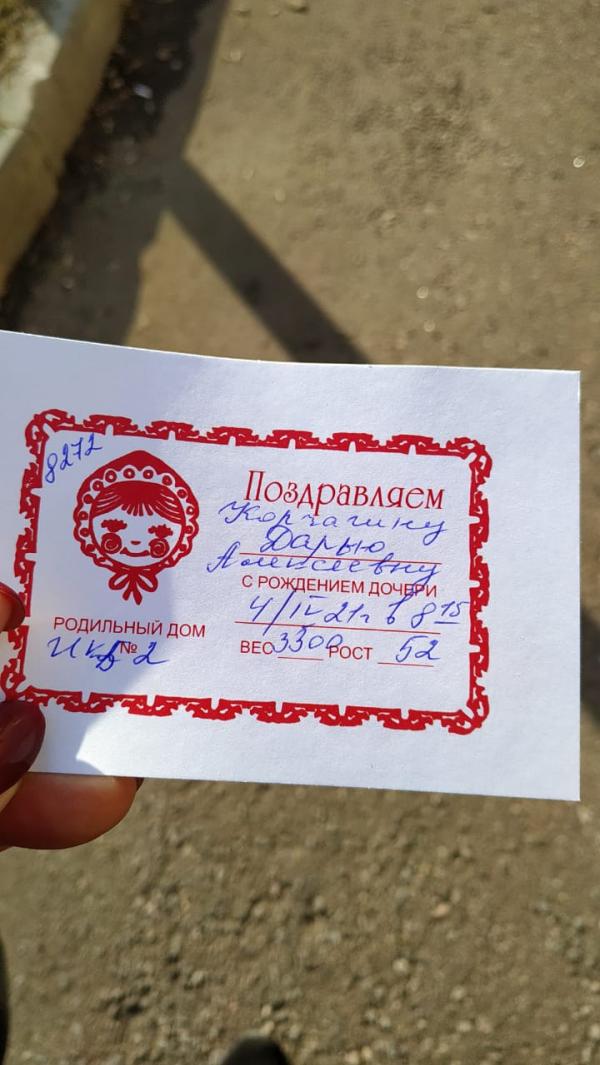 8272
Поздравляем
Корчагину
Дарью
Алексеевну
С РОЖДЕНИЕМ ДОЧЕРИ
4/IV 21г в 8 15
ВЕС 3300 РОСТ 52
РОДИЛЬНЫЙ ДОМ
№ 2